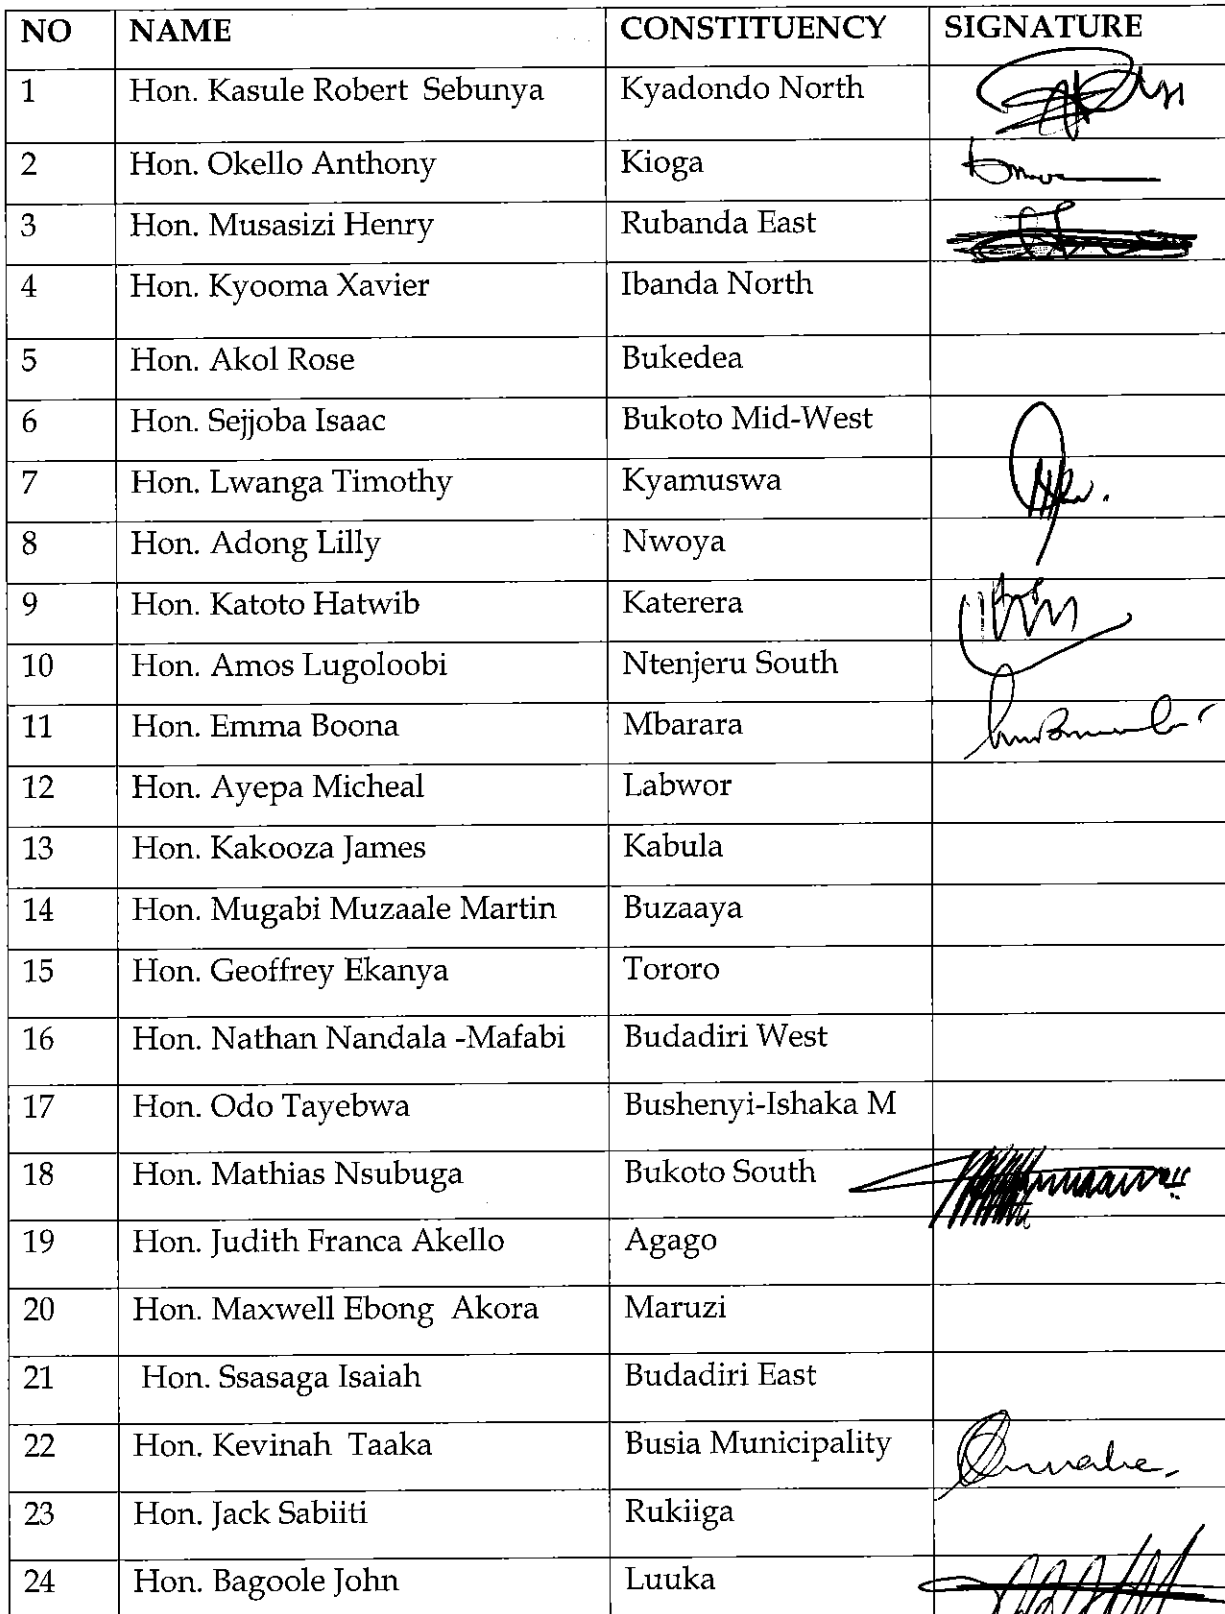 NO NAME CONSTITUENCY SIGNATURE
1 Hon. Kasule Robert Sebunya Kyadondo North
2 Hon. Okello Anthony Kioga
3 Hon. Musasizi Henry Rubanda East
4 Hon. Kyooma Xavier Ibanda North
5 Hon. Akol Rose Bukedea
6 Hon. Sejjoba Isaac Bukoto Mid-West
7 Hon. Lwanga Timothy Kyamuswa
8 Hon. Adong Lilly Nwoya
9 Hon. Katoto Hatwib Katerera
10 Hon. Amos Lugoloobi Ntenjeru South
11 Hon. Emma Boona Mbarara
12 Hon. Ayepa Micheal Labwor
13 Hon. Kakooza James Kabula
14 Hon. Mugabi Muzaale Martin Buzaaya
15 Hon. Geoffrey Ekanya Tororo
16 Hon. Nathan Nandala -Mafabi Budadiri West
17 Hon. Odo Tayebwa Bushenyi-Ishaka M
18 Hon. Mathias Nsubuga Bukoto South
19 Hon. Judith Franca Akello Agago
20 Hon. Maxwell Ebong Akora Maruzi
21 Hon. Ssasaga Isaiah Budadiri East
22 Hon. Kevinah Taaka Busia Municipality
23 Hon. Jack Sabiiti Rukiiga
24 Hon. Bagoole John Luuka